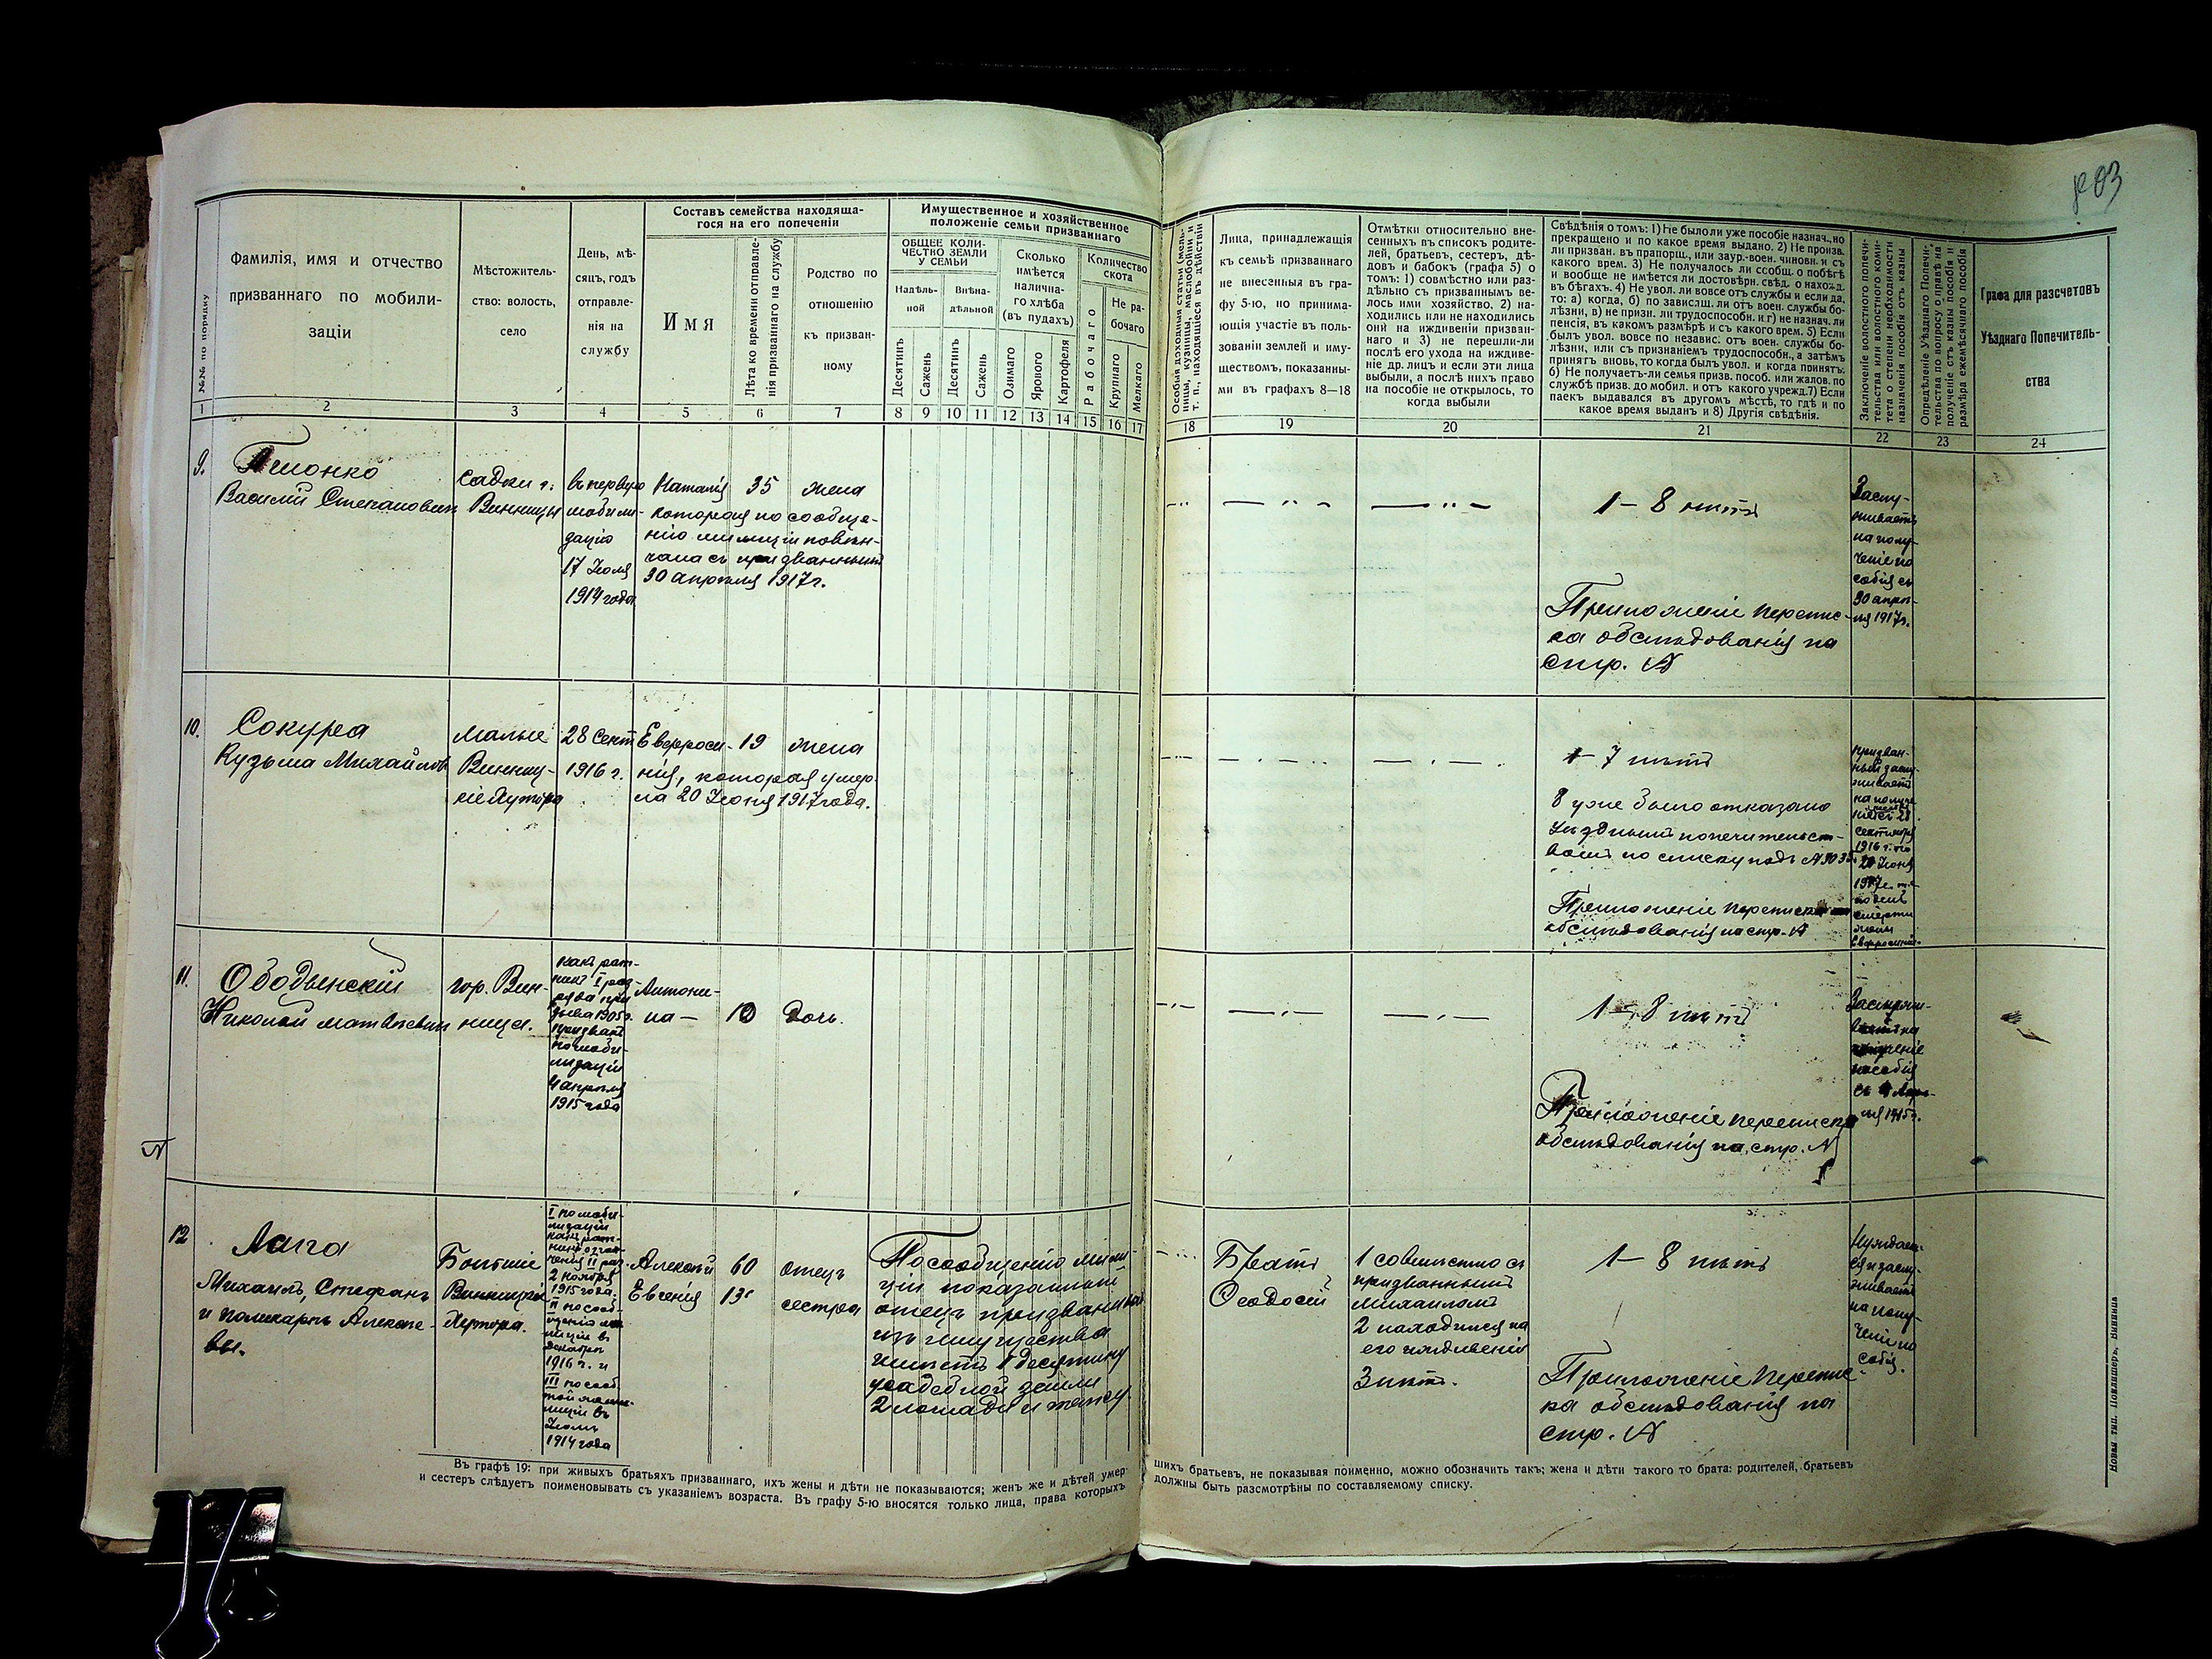 803
№№ по порядку
Фамилія, имя и отчество
призваннаго по мобили-
заціи
Мѣстожитель-
ство: волость,
село
День, мѣ-
сяцъ, годъ
отправле-
нія на
службу
Составъ семейства находяща-
гося на его попеченіи
Имя
Лѣта ко времени отправле-
нія призваннаго на службу
Родство по
отношенію
къ призван-
ному
Имущественное и хозяйственное
положеніе семьи призваннаго
ОБЩЕЕ КОЛИ-
ЧЕСТВО ЗЕМЛИ
У СЕМЬИ
Надѣль-
ной
Внѣна-
дѣльной
Десятинъ
Сажень
Десятинъ
Сажень
Сколько
имѣется
налична-
го хлѣба
(въ пудахъ)
Озимаго
Ярового
Картофеля
Количество
скота
Рабочаго
Не ра-
бочаго
Крупнаго
Мелкаго
Особыя доходныя статьи (мель-
ницы, кузницы, маслобойни и
т. п., находящіеся въ дѣйствіи
Лица, принадлежащія
къ семьѣ призваннаго
не внесенныя въ гра-
фу 5-ю, но принима-
ющія участіе въ поль-
зованіи землей и иму-
ществомъ, показанны-
ми въ графахъ 8—18
Отмѣтки относительно вне-
сенныхъ въ списокъ родите-
лей, братьевъ, сестеръ, дѣ-
довъ и бабокъ (графа 5) о
томъ: 1) совмѣстно или раз-
дѣльно съ призваннымъ ве-
лось ими хозяйство. 2) на-
ходились или не находились
они на иждивеніи призван-
наго и 3) не перешли-ли
послѣ его ухода на иждиве-
ніе др. лицъ и если эти лица
выбыли, а послѣ нихъ право
на пособіе не открылось, то
когда выбыли
Свѣдѣнія о томъ: 1) Не было ли уже пособіе назнач., но
прекращено и по какое время выдано. 2) Не произв.
ли призван. въ прапорщ., или заур.-воен. чиновн. и съ
какого врем. 3) Не получалось ли сообщ. о побѣгѣ
и вообще не имѣется ли достовѣрн. свѣд. о нахожд.
въ бѣгахъ. 4) Не увол. ли вовсе отъ службы и если да,
то: а) когда, б) по зависящ. ли отъ воен. службы бо-
лѣзни, в) не призн. ли трудоспособн. и г) не назнач. ли
пенсія, въ какомъ размѣрѣ и съ какого врем. 5) Если
былъ увол. вовсе по независ. отъ воен. службы бо-
лѣзни, или съ признаніемъ трудоспособн., а затѣмъ
принятъ вновь, то когда былъ увол. и когда принятъ.
6) Не получаетъ-ли семья призв. пособ. или жалов. по
службѣ призв. до мобил. и отъ какого учрежд. 7) Если
паекъ выдавался въ другомъ мѣстѣ, то гдѣ и по
какое время выданъ и 8) Другія свѣдѣнія.
Заключеніе волостного попечи-
тельства или волостного коми-
тета о степени необходимости
назначенія пособія отъ казны
Опредѣленіе Уѣзднаго Попечи-
тельства по вопросу о правѣ на
полученіе отъ казны пособія и
размѣра ежемѣсячнаго пособія
Графа для разсчетовъ
Уѣзднаго Попечитель-
ства
1 2 3 4 5 6 7 8 9 10 11 12 13 14 15 16 17 18 19 20 21 22 23 24
9.
Василій Степановичъ
Садки г.
Винницы
въ первую
мобили-
зацію
17 Іюля
1914 года
Наталія 35 жена
которая по сообще-
нію милиціи повѣн-
чана съ призваннымъ
30 апрѣля 1917 г.
1 – 8 нѣтъ
Приложеніе перепис-
ка обслѣдованія на
стр. №
Заслу-
живаетъ
на полу-
ченіе по
собія съ
30 апрѣ-
ля 1917 г.
10.
Сокура
Кузьма Михайловъ
Малые
Винниц-
кіе Хутора
28 Сент
1916 г.
Евфроси- 19 жена
нія, которая умер
ла 20 Іюня 1917 года.
1 – 7 нѣтъ
8 уже было отказано
Уѣзднымъ попечительст-
вомъ по списку подъ №
Приложеніе переписка
обслѣдованія на стр. №
призван-
ный заслу-
живаетъ
на получе
съ 28
сентября
1916 г. по
20 Іюня
1917 г.
смерти
жены
Евфросиніи
11.
Ободынскій
Николай Матвѣевичъ
гор. Вин-
ница.
какъ рат-
никъ I раз-
ряда при
зыва 1905 г.
призванъ
по моби-
лизаціи
4 апрѣля
1915 года
Антони-
на – 10 дочь.
1 – 8 нѣтъ
Приложеніе переписка
обслѣдованія на стр. №
Заслужи-
ваетъ на
полученіе
пособія
съ 4 Апрѣ-
ля 1915 г.
12
Лага
Михаилъ, Стефанъ
и Поликарпъ Алексѣе-
вы.
Большіе
Винницкіе
Хутора.
I по моби-
лизаціи
какъ рат-
никъ ополчен
ченія II раз.
2 ноября
1915 года.
II по сооб-
щенію ми
лиціи въ
декабрѣ
1916 г. и
III по сооб
милиціи въ
Іюлѣ
1914 года
Алексѣй 60 отецъ
Евгенія 13 сестра
По сообщенію мили-
ціи показанный
отецъ призванныхъ
изъ имущества
имѣетъ 1 десятину
усадебной земли
2 лошади и
Братъ
Ѳеодосій
1 совмѣстно съ
призваннымъ
Михаиломъ
2 находился на
его иждивеніи
3 нѣтъ.
1 – 8 нѣтъ
Приложеніе перепис-
ка обслѣдованія на
стр. №
Нуждает-
ся и заслу-
живаетъ
на полу-
ченіе по
собія.
Въ графѣ 19: при живыхъ братьяхъ призваннаго, ихъ жены и дѣти не показываются; женъ же и дѣтей умер-
шихъ братьевъ, не показывая поименно, можно обозначить такъ; жена и дѣти такого то брата: родителей, братьевъ
и сестеръ слѣдуетъ поименовывать съ указаніемъ возраста. Въ графу 5-ю вносятся только лица, права которыхъ
должны быть разсмотрѣны по составляемому списку.
Новая тип. Цовлишеръ, Винница